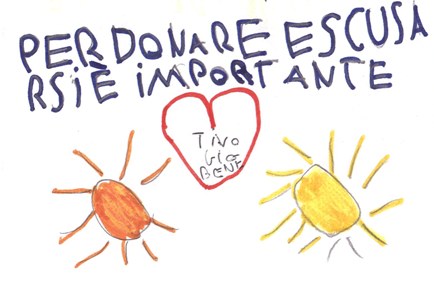 PERDONARE E SCUSA
RSI È IMPORTANTE
TI VO
GLIO
BENE